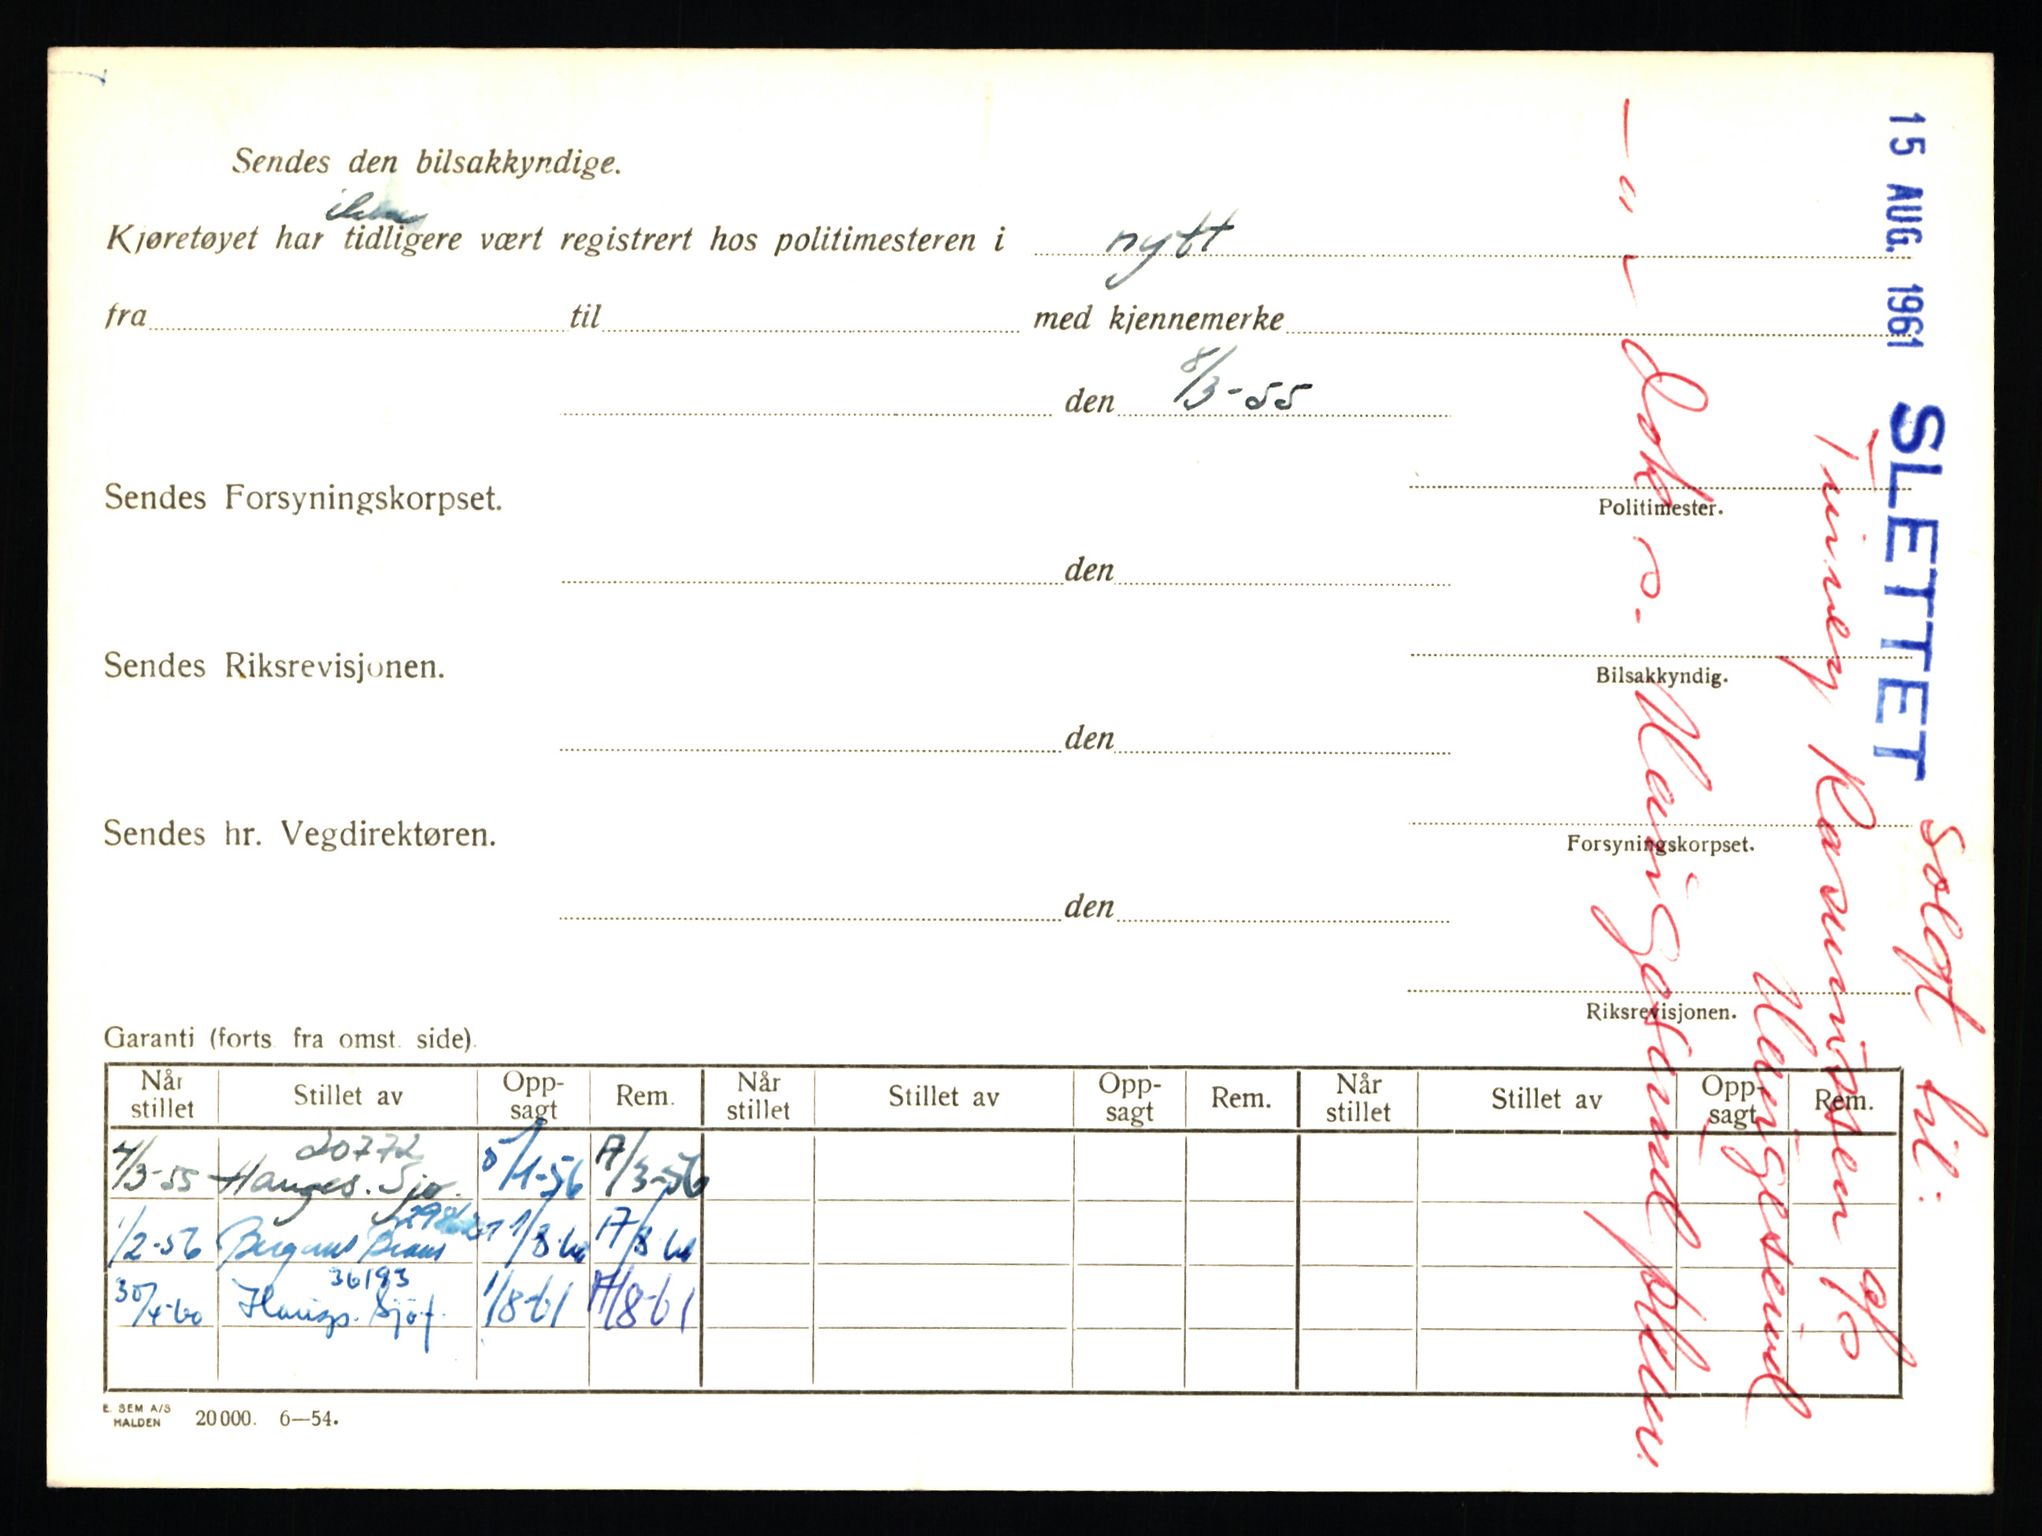 Sendes den bilsakkyndige.
ikke
Kjøretøyet har tidligere vært registrert hos politimesteren i nytt
fra til med kjennemerke
den 8/3-55
Politimester.
Sendes Forsyningskorpset.
den
Bilsakkyndig.
Sendes Riksrevisjonen.
den
Forsyningskorpset.
Sendes hr. Vegdirektøren.
den
Riksrevisjonen.
Garanti (forts fra omst. side).
Når stillet Stillet av Opp-sagt Rem. Når stillet Stillet av Opp-sagt Rem. Når stillet Stillet av Opp-sagt Rem.
20772
4/3-55 Hauges. Sjø. 5/1-56 17/3-56
1/2-56 Bergens Brann
36193
30/4-60 Haugs. Sjøf. 1/8-61 17/8-61
E. SEM A/S
HALDEN 20000. 6—54.
15 AUG. 1961 SLETTET
solgt til:
Rasmussen
- " -